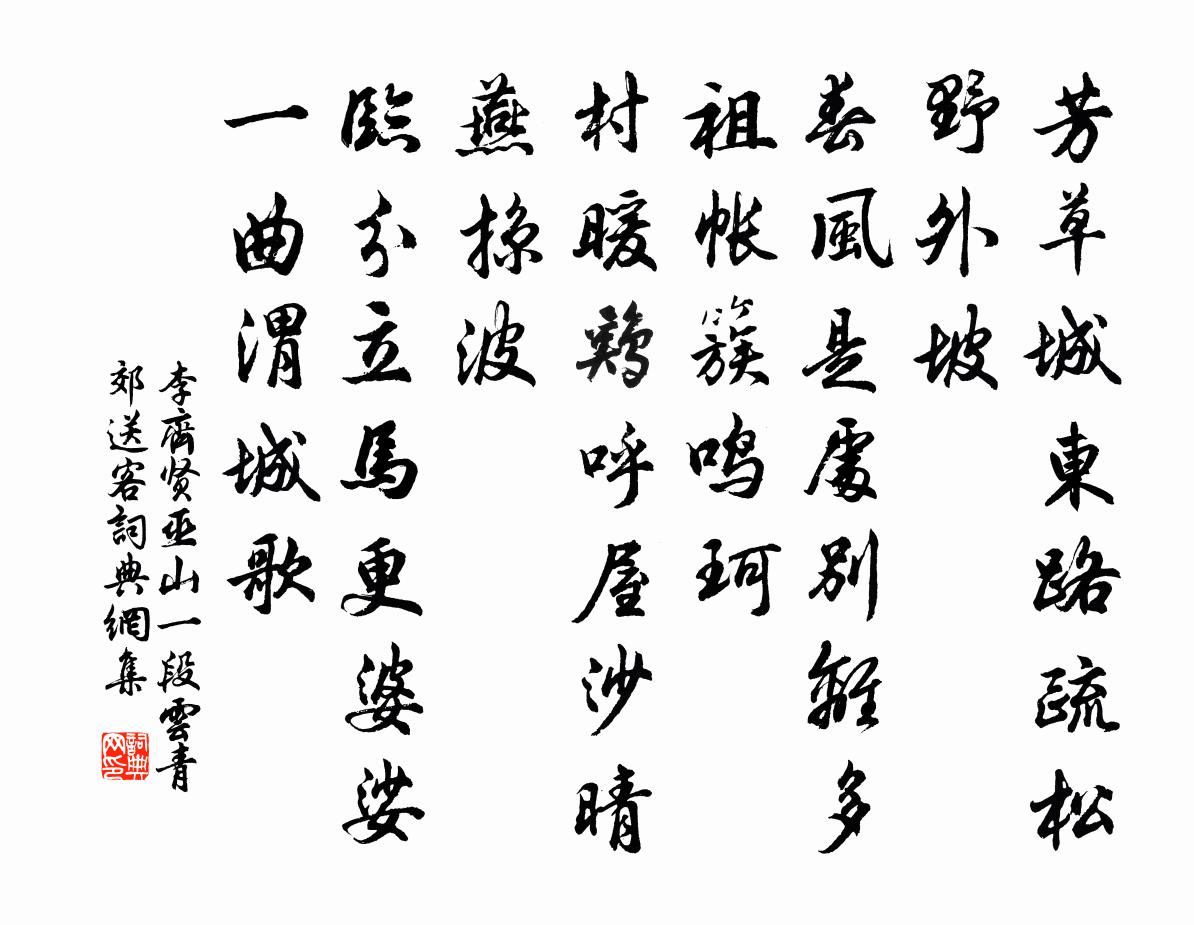 芳草城東路疏松
野外坡
春風是處別離多
祖帳簇鳴珂
村暖鷄呼屋沙晴
燕掠波
臨分立馬更婆娑
一曲渭城歌
李齊贤巫山一段雲青
郊送客詞典網集
詞典网印